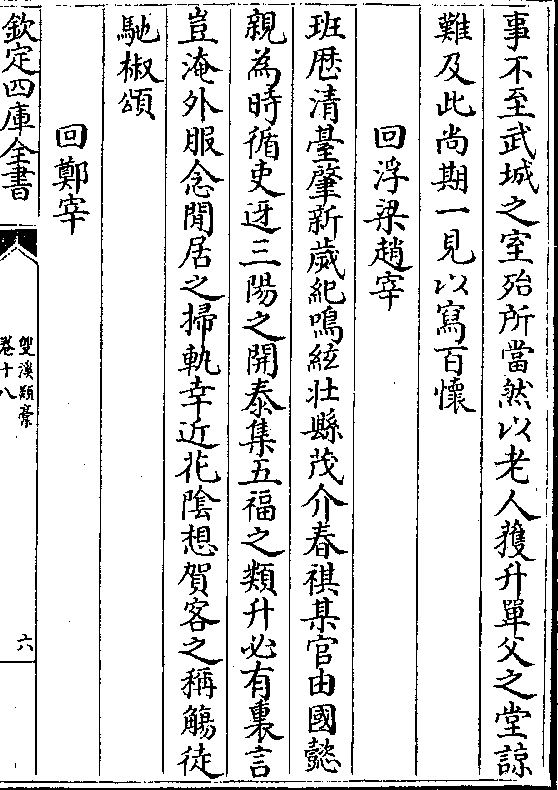 事不至武城之室殆所當然以老人獲升單父之堂諒
難及此尚期一見以寫百懷
回浮梁趙宰
班厯清臺肇新歲紀鳴絃壯縣茂介春祺某官由國懿
親為時循吏迓三陽之開泰集五福之類升必有裏言
豈淹外服念閒居之掃軌幸近花陰想賀客之稱觴徒
馳椒頌
回鄭宰
欽定四庫全書
雙溪類稾
卷十八
六